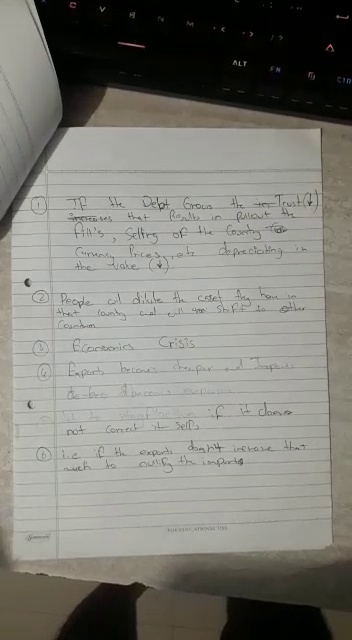 C V B N M
ALT FN CTR
① If the Debt Grows the Trust(↓)
increases that Results in Pullout the
Fill's, Selling of the Country
Currency Prices, etc depreciating in
the value (↓)
② People will dilute the asset they have in
that country and will shift to other
Countries
③ Economics Crisis
④ Exports becomes cheaper and Imports
becomes
if it does
not correct it self,
⑥ i.e if the exports doesn't increase that
much to nullify the imports
FOR EDUCATIONAL USE